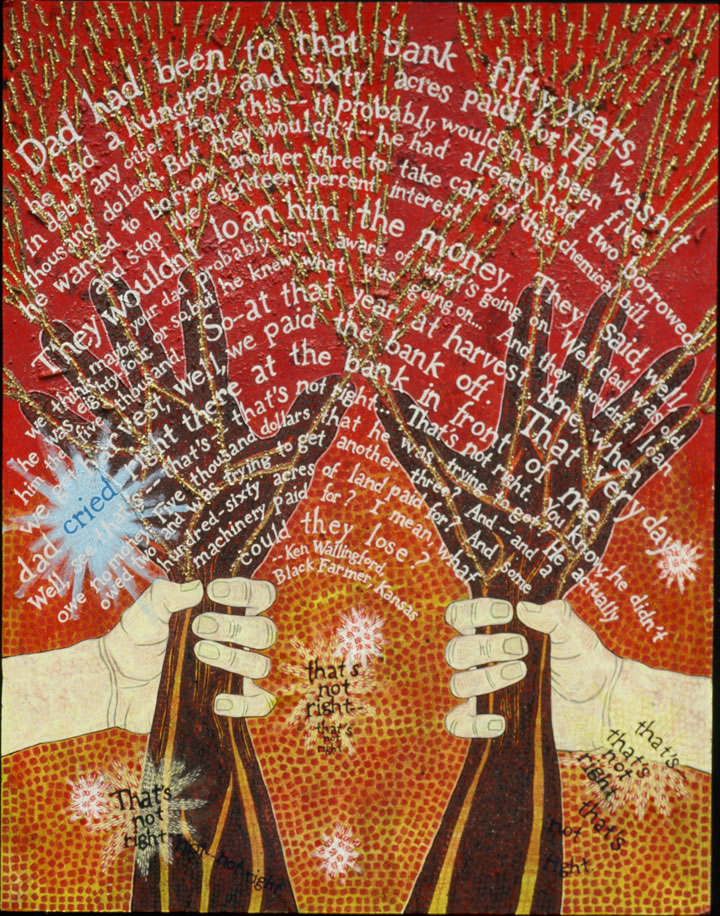 Dad had been to that bank fifty years,
he had a hundred and sixty acres paid for. He wasn't
in debt any other than this -- it probably would have been five
thousand dollars. But they wouldn't -- he had already had two borrowed
he wanted to borrow another three to take care of this chemical bill,
and stop the eighteen percent interest.
They wouldn't loan him the money. They said, well,
we think maybe your dad probably isn't aware of what's going on. Well, dad was old,
he was eighty-four, or so, but he knew what was going on... And they wouldn't loan
him the five thousand. So--at that year, at harvest time, when
we got our harvest, well, we paid the bank off. That very day
dad cried right there at the bank in front of me.
Well, see, that's -- that's -- that's not right... That's not right. You know, he didn't
owe no money. Five thousand dollars that he was trying to get. He actually
owed two and was trying to get another three? And -- and a
hundred-sixty acres of land paid for? And some
machinery paid for? I mean, what
could they lose?
-- Ken Wallingford,
Black Farmer, Kansas
that's
not
right--
that's
not
right
that's
that's
not
right
that's
not
right
That's
not
right
not right